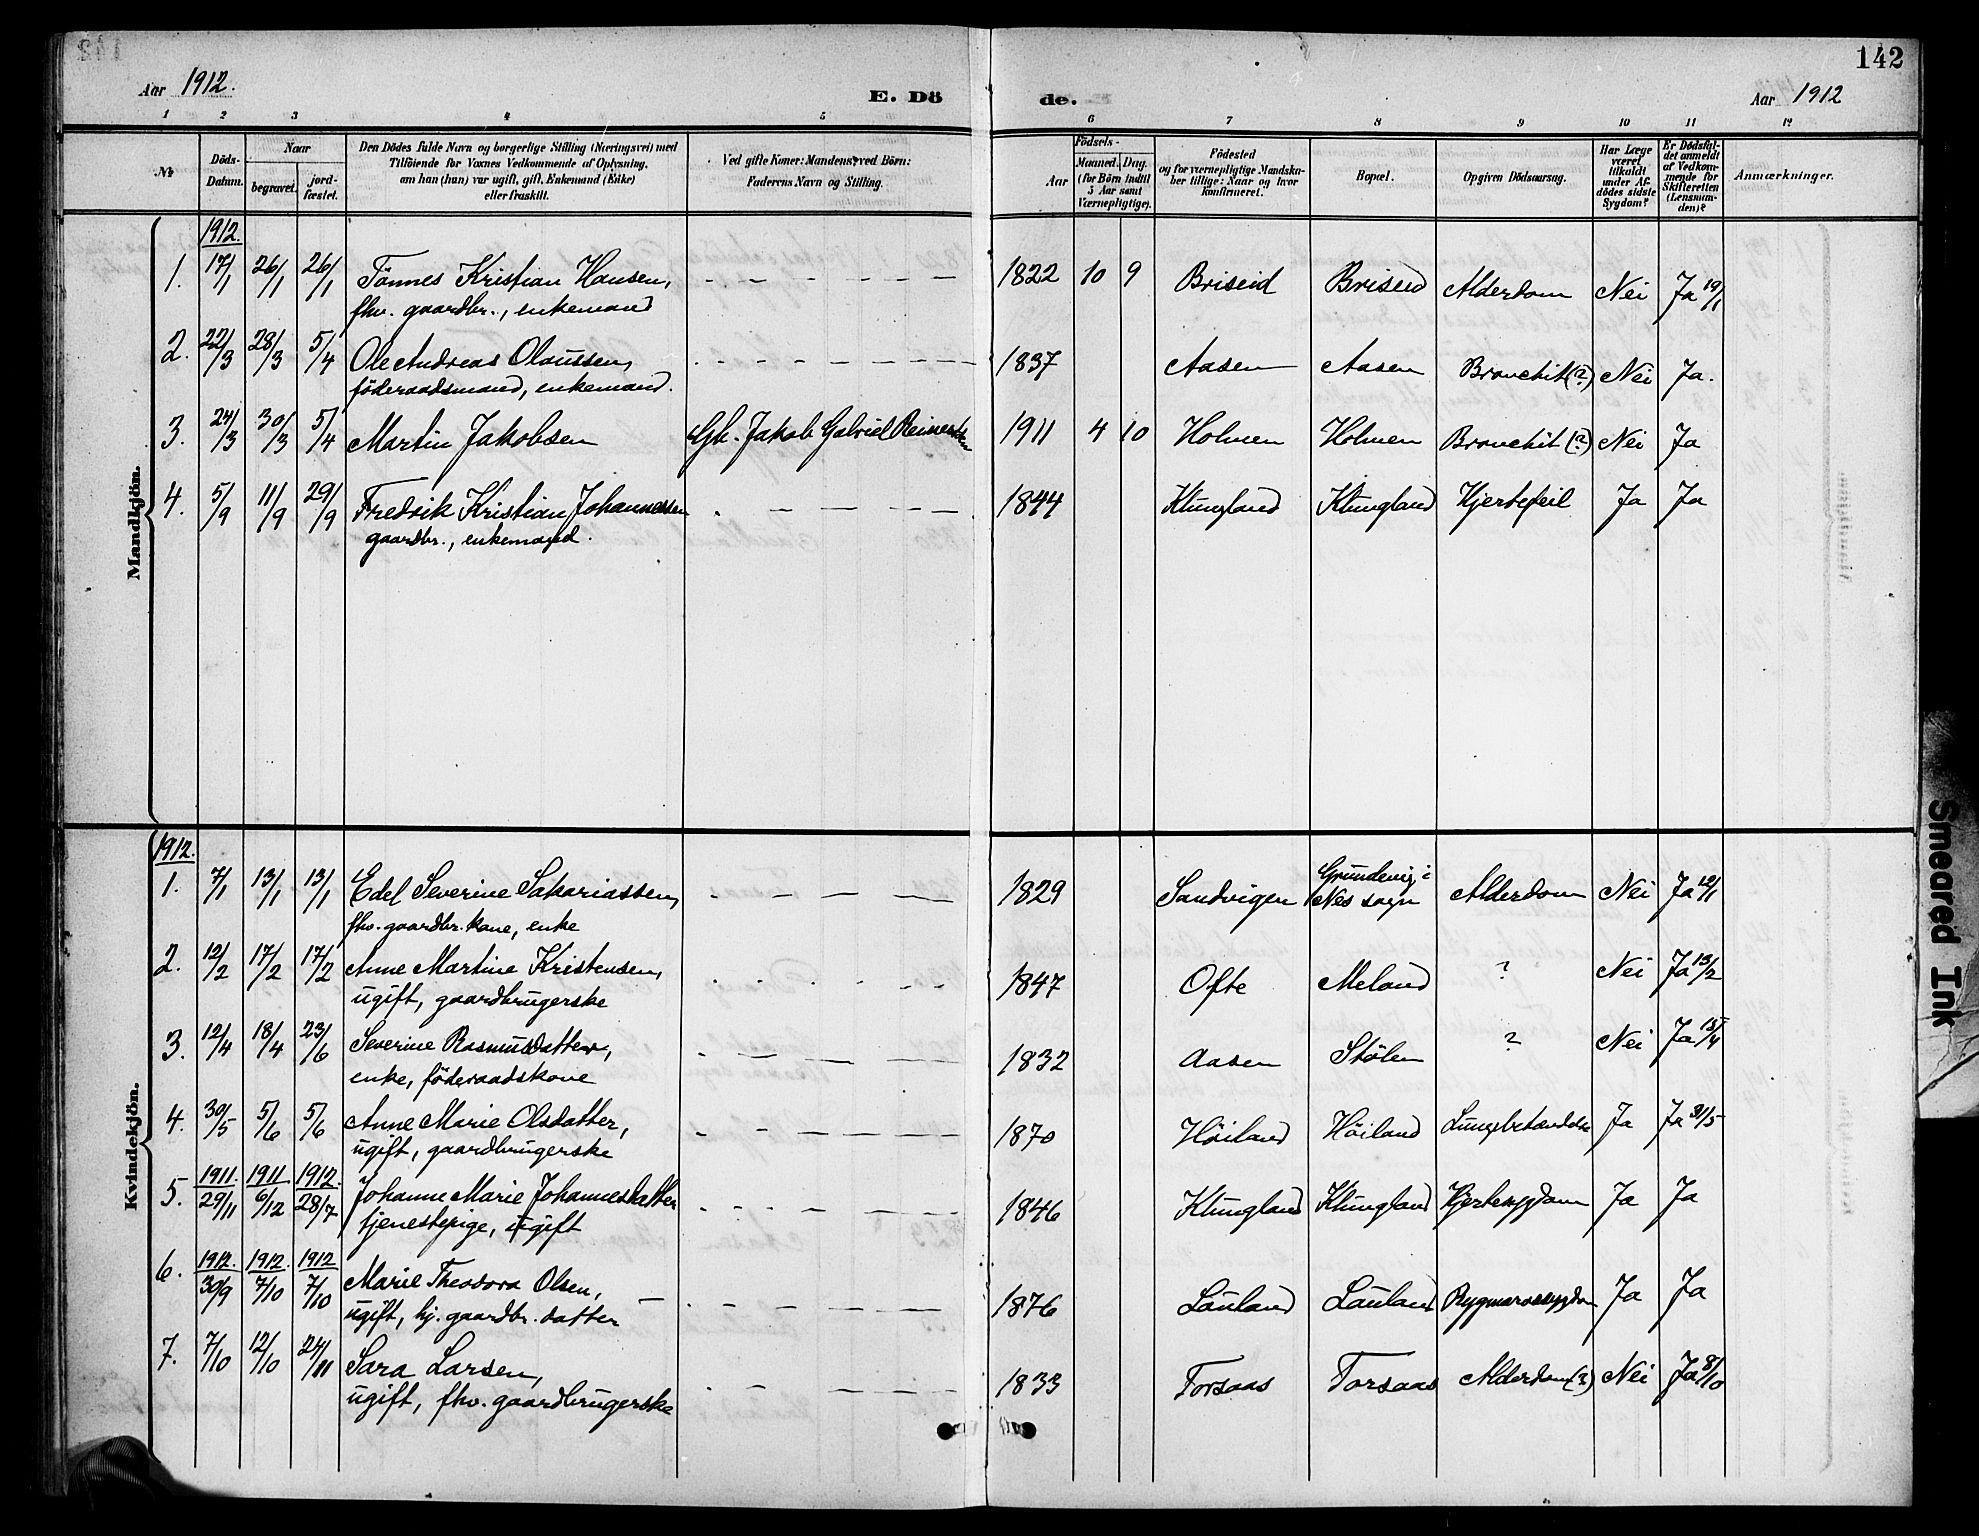 142
Aar 1912.
E. Dö
de.
Aar 1912
1 2 3 4 5 6 7 8 9 10 11 12
№
Döds-
Datum.
Naar
begravet.
jord-
fæstet.
Den Dödes fulde Navn og borgerlige Stilling (Næringsvei) med
Tilföiende for Voxnes Vedkommende af Oplysning,
om han (hun) var ugift, gift, Enkemand (Enke)
eller fraskilt.
Ved gifte Koner: Mandens, ved Börn:
Faderens Navn og Stilling.
Födsels-
Aar
Maaned.
Dag.
(for Börn indtil
5 Aar samt
Værnepligtige).
Födested
og for værnepligtige Mandska-
ber tillige: Naar og hvor
konfirmeret.
Bopæl.
Opgiven Dödsaarsag.
Har Læge
været
tilkaldt
under Af-
dödes sidste
Sygdom?
Er Dödsfal-
det anmeldt
af Vedkom-
mende for
Skifteretten
(Lensman-
den)?
Anmærkninger.
Mandkjön.
1912.
1. 17/1 26/1 26/1 Tönnes Kristian Hansen, 1822 10 9 Briseid Briseid Alderdom Nei Ja 19/1
fhv. gaardbr., enkemand
2. 22/3 28/3 5/4 Ole Andreas Olaussen, 1837 Aasen Aasen Bronchit (?) Nei Ja.
föderaadsmand, enkemand.
3. 24/3 30/3 5/4 Martin Jakobsen Gbr. Jakob Gabriel Reinertsen 1911 4 10 Holmen Holmen Bronchit (?) Nei Ja
4. 5/9 11/9 29/9 Fredrik Kristian Johannessen 1844 Klungland Klungland Hjertefeil Ja Ja
gaardbr., enkemand.
Kvindekjön.
1912.
1. 7/1 13/1 13/1 Edel Severine Sakariassen, 1829 Sandvigen Grundevig i
Nes sogn Alderdom Nei Ja 12/1
fhv. gaardbr. kone, enke
2. 12/2 17/2 17/2 Anne Martine Kristensen, 1847 Ofte Meland ? Nei Ja 13/2
ugift, gaardbrugerske
3. 12/4 18/4 23/6 Severine Rasmusdatter, 1832 Aasen Stölen ? Nei Ja 15/4
enke, föderaadskone
4. 30/5 5/6 5/6 Anne Marie Olsdatter, 1870 Höiland Höiland Lungebetændelse Ja Ja 31/5
ugift, gaardbrugerske
1911. 1911. 1912.
5. 29/11 6/12 28/7 Johanne Marie Johannesdatter 1846 Klungland Klungland Hjertesygdom Ja Ja
tjenestepige, ugift
1912. 1912. 1912
6. 30/9 7/10 7/10 Marie Theodora Olsen, 1876 Lauland Lauland Rygmarvssygdom Ja Ja
ugift, hj. gaardbr. datter
7. 7/10 12/10 24/11 Sara Larsen, 1833 Torsaas Torsaas Alderdom (?) Nei Ja 8/10
ugift, fhv. gaardbrugerske
Smeared Ink